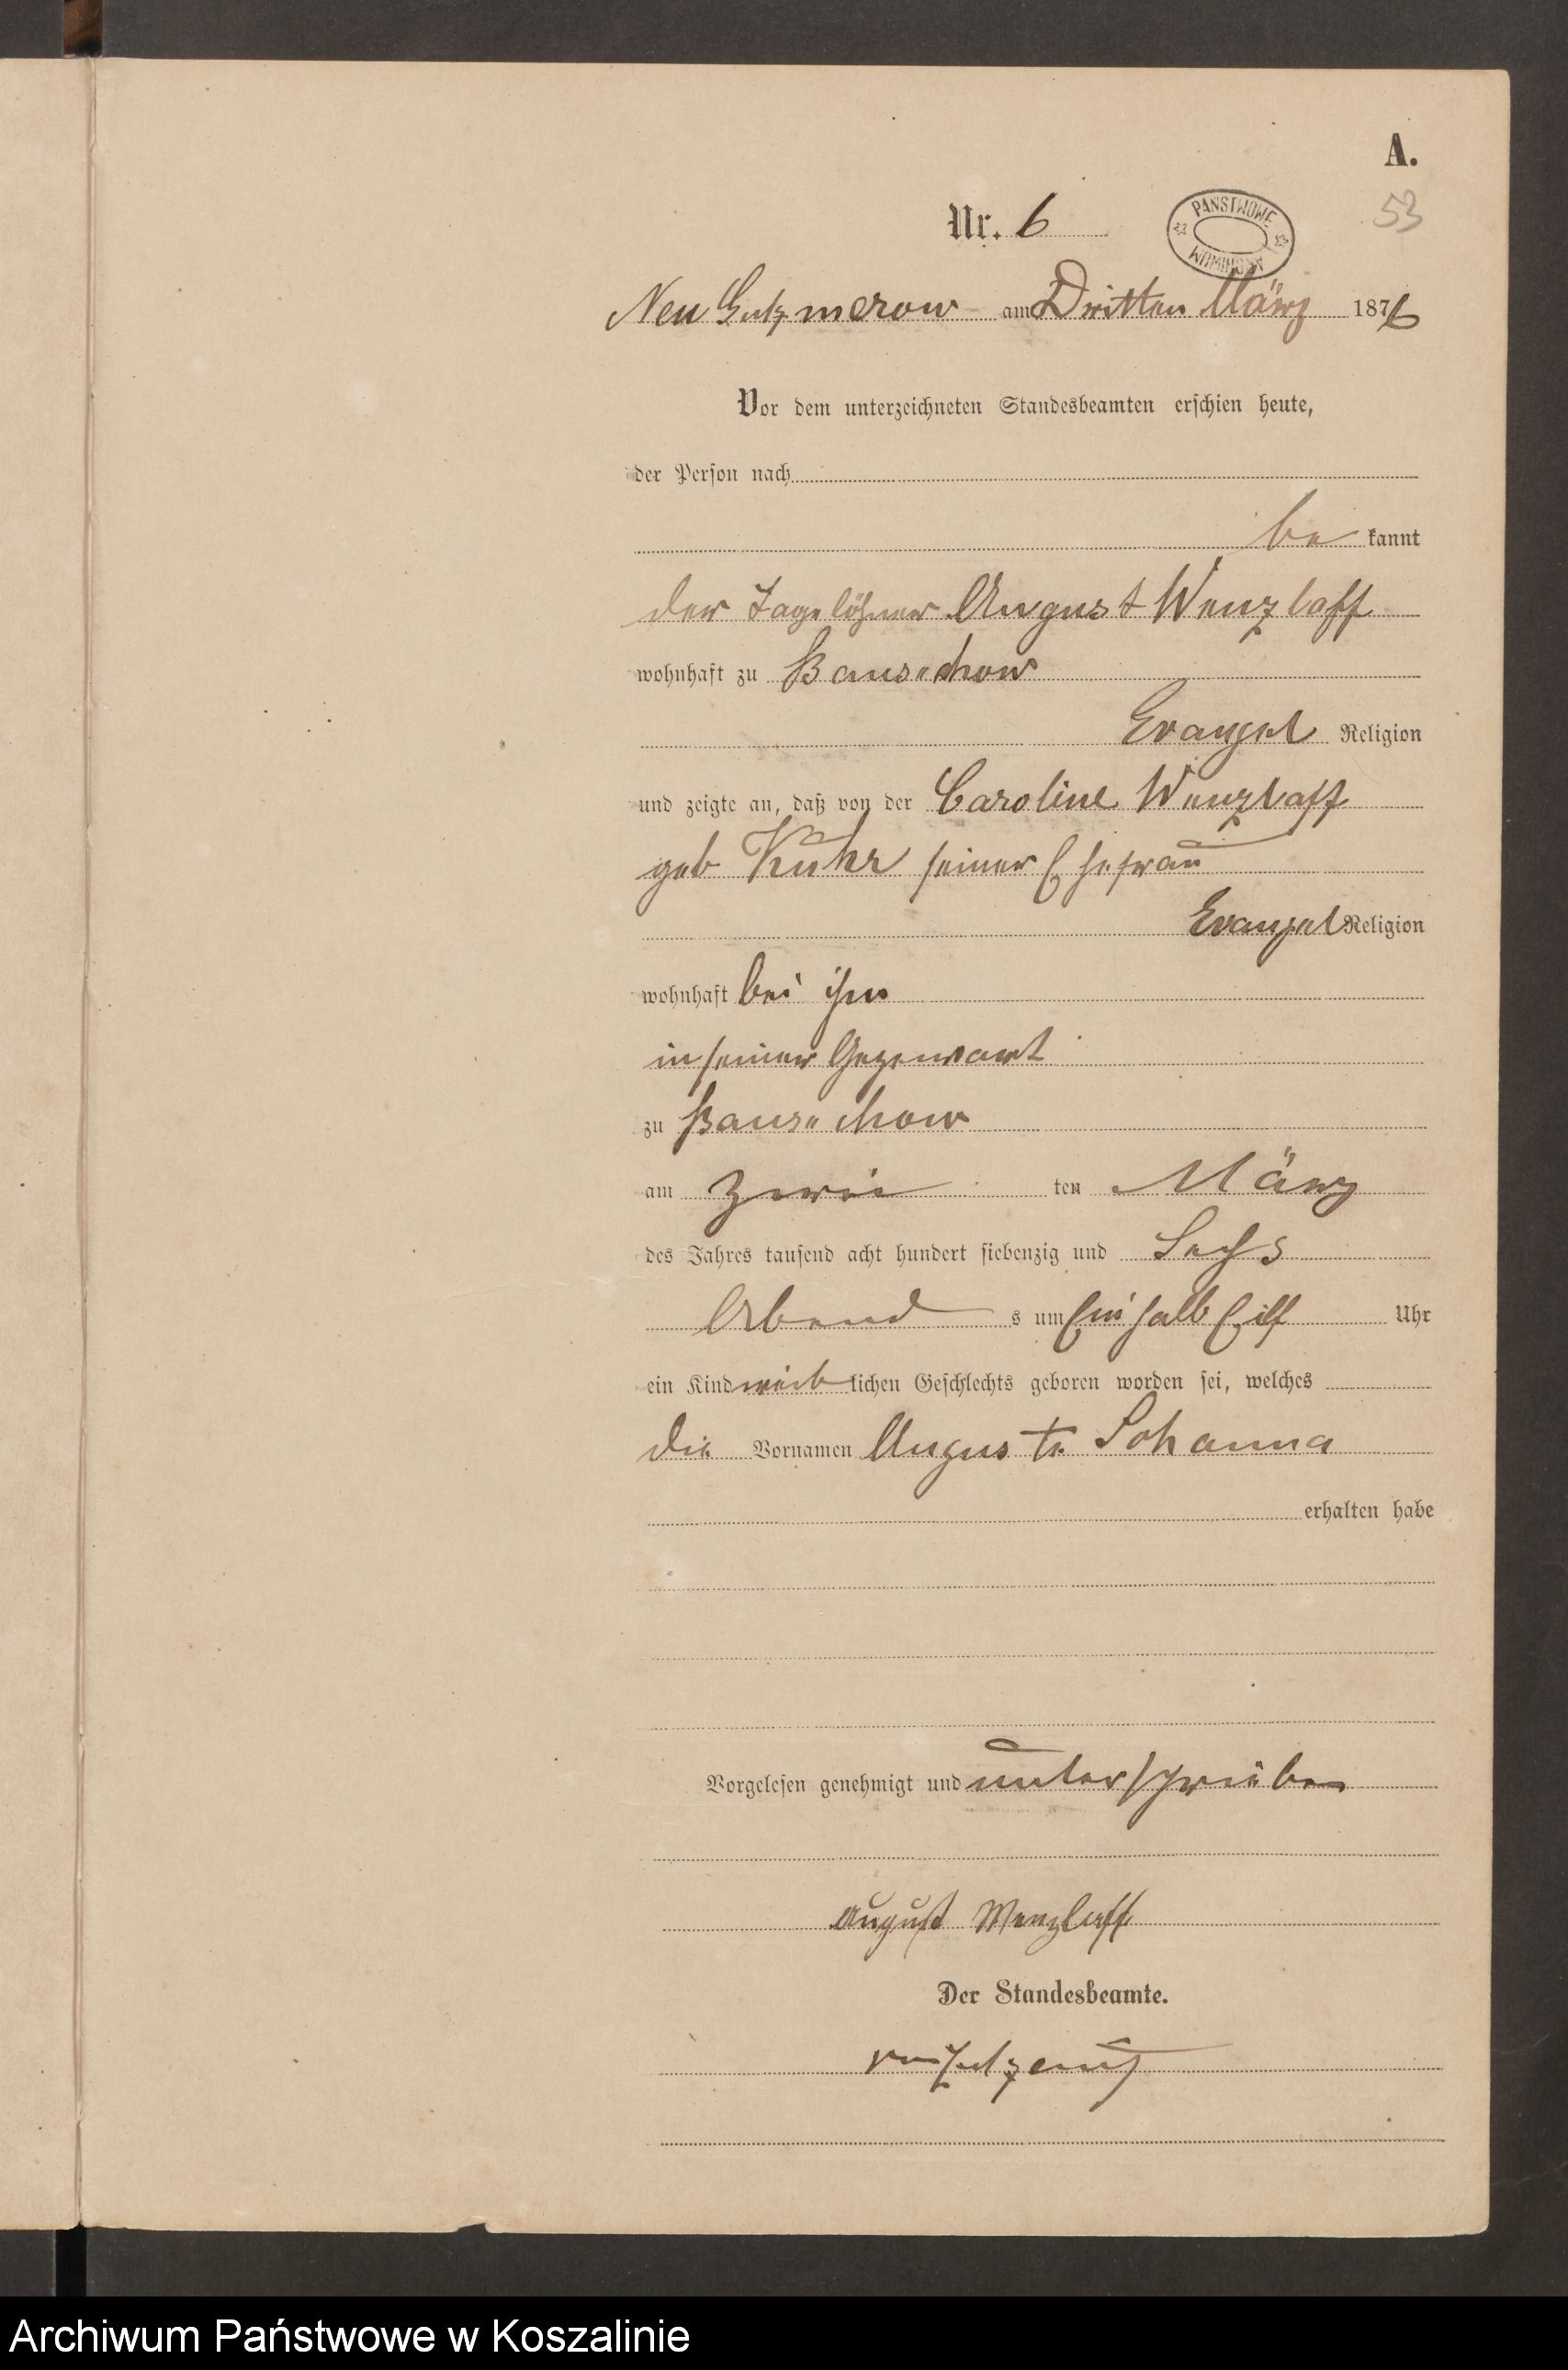 A.
Nr. 6
PAŃSTWOWE ARCHIWUM
53
Neu Gutzmerow am Dritten März 1876
Vor dem unterzeichneten Standesbeamten erschien heute,
der Person nach
be kannt
der Tagelöhner August Wenzlaff
wohnhaft zu
Evangel Religion
und zeigte an, daß von der Caroline Wenzlaff
geb Kuhr seiner Ehefrau
Evangel Religion
wohnhaft bei ihm
in seiner Gegenwart
zu
am zwei ten März
des Jahres tausend acht hundert siebenzig und Sechs
Abend s um Ein halb Eilf Uhr
ein Kind weiblichen Geschlechts geboren worden sei, welches
die Vornamen Auguste Johanna
erhalten habe
Vorgelesen genehmigt und unterschrieben
August Wenzlaff
Der Standesbeamte.
Archiwum Państwowe w Koszalinie